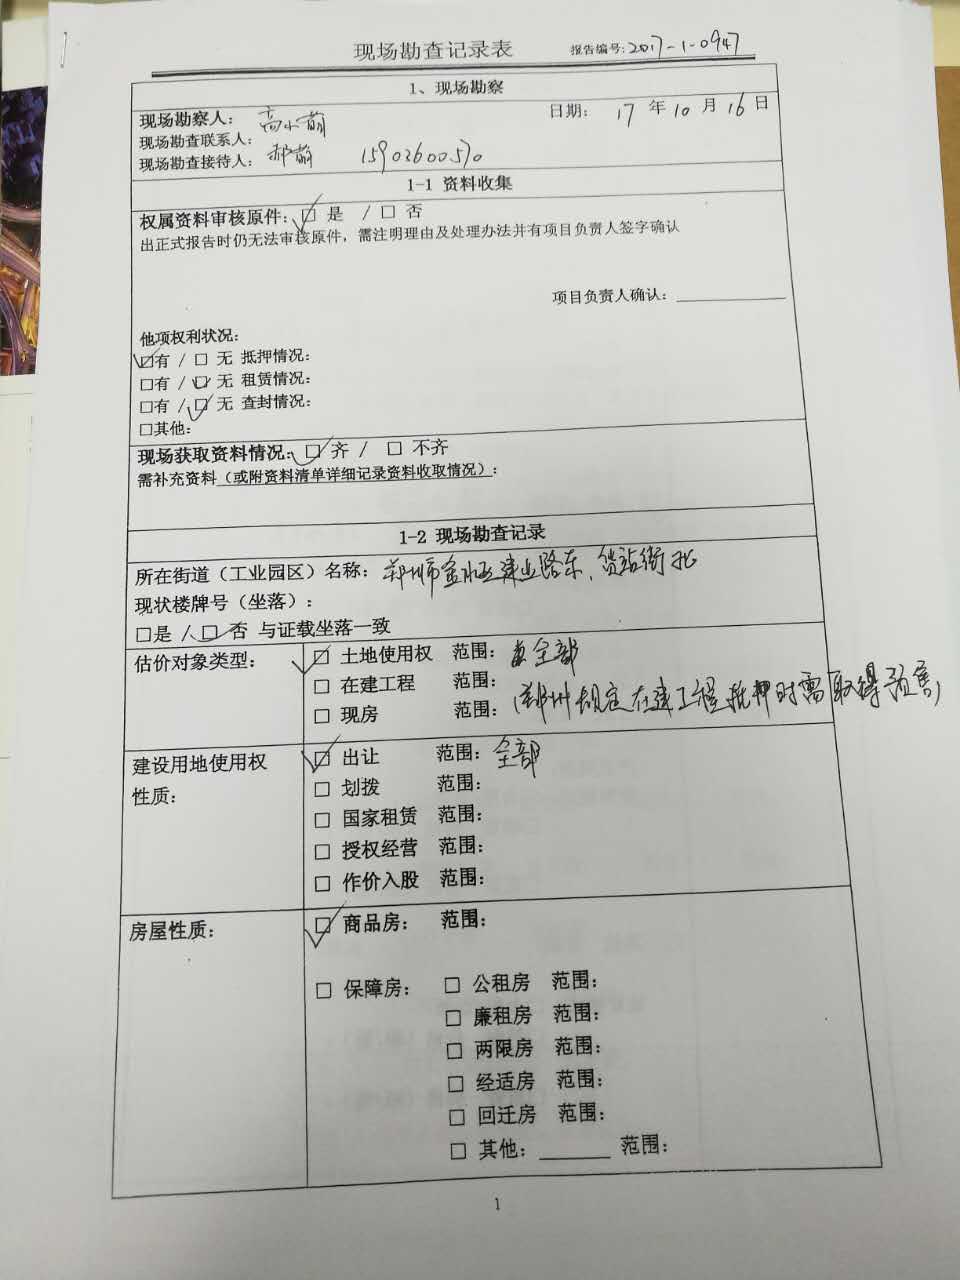 现场勘查记录表 报告编号:2017-1-0947
1、现场勘察
现场勘察人: 高小萌 日期: 17 年 10 月 16 日
现场勘查联系人:
现场勘查接待人: 郝萌 15902600570
1-1 资料收集
权属资料审核原件:☑ 是 / □ 否
出正式报告时仍无法审核原件,需注明理由及处理办法并有项目负责人签字确认
项目负责人确认:
他项权利状况:
☑有 / □ 无 抵押情况:
□有 / ☑ 无 租赁情况:
□有 / ☑ 无 查封情况:
□其他:
现场获取资料情况:☑ 齐 / □ 不齐
需补充资料(或附资料清单详细记录资料收取情况):
1-2 现场勘查记录
所在街道(工业园区)名称: 郑州市金水区建业路东、货站街北
现状楼牌号(坐落):
□是 / ☑ 否 与证载坐落一致
估价对象类型: ☑ 土地使用权 范围: 全部
□ 在建工程 范围:
□ 现房 范围: (郑州规定在建工程抵押时需取得预售)
建设用地使用权 ☑ 出让 范围: 全部
性质: □ 划拨 范围:
□ 国家租赁 范围:
□ 授权经营 范围:
□ 作价入股 范围:
房屋性质: ☑ 商品房: 范围:
□ 保障房: □ 公租房 范围:
□ 廉租房 范围:
□ 两限房 范围:
□ 经适房 范围:
□ 回迁房 范围:
□ 其他: 范围:
1